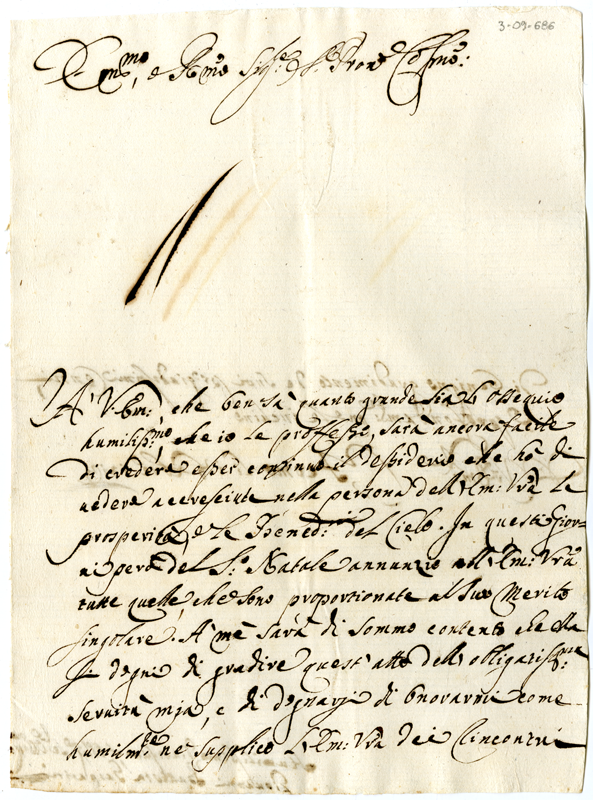 3-09-686
Em.mo, e R.mo Sig.re, Sig.r Pron. Col.mo:
A' V. Em:, che ben sà quanto grande sia lo ossequio
humiliss.mo che io le professo, sarà ancora facile
di credere esser continuo il dessiderio che hò di
vedere accresciute nella persona dell'Em: Vrã le
prosperità, e le Bened: del Cielo. In questi Gior-
ni però del S.o Natale annunzio all'Em: Vrã
tutte quelle, che sono proportionate al suo Merito
singolare. A mè sarà di sommo contento che ella
si degni di gradire quest'atto dell'obligatiss.ma
servitù mia, e di degnarsi di honorarmi come
humilm.te ne supplico L'Em: Vrã dei